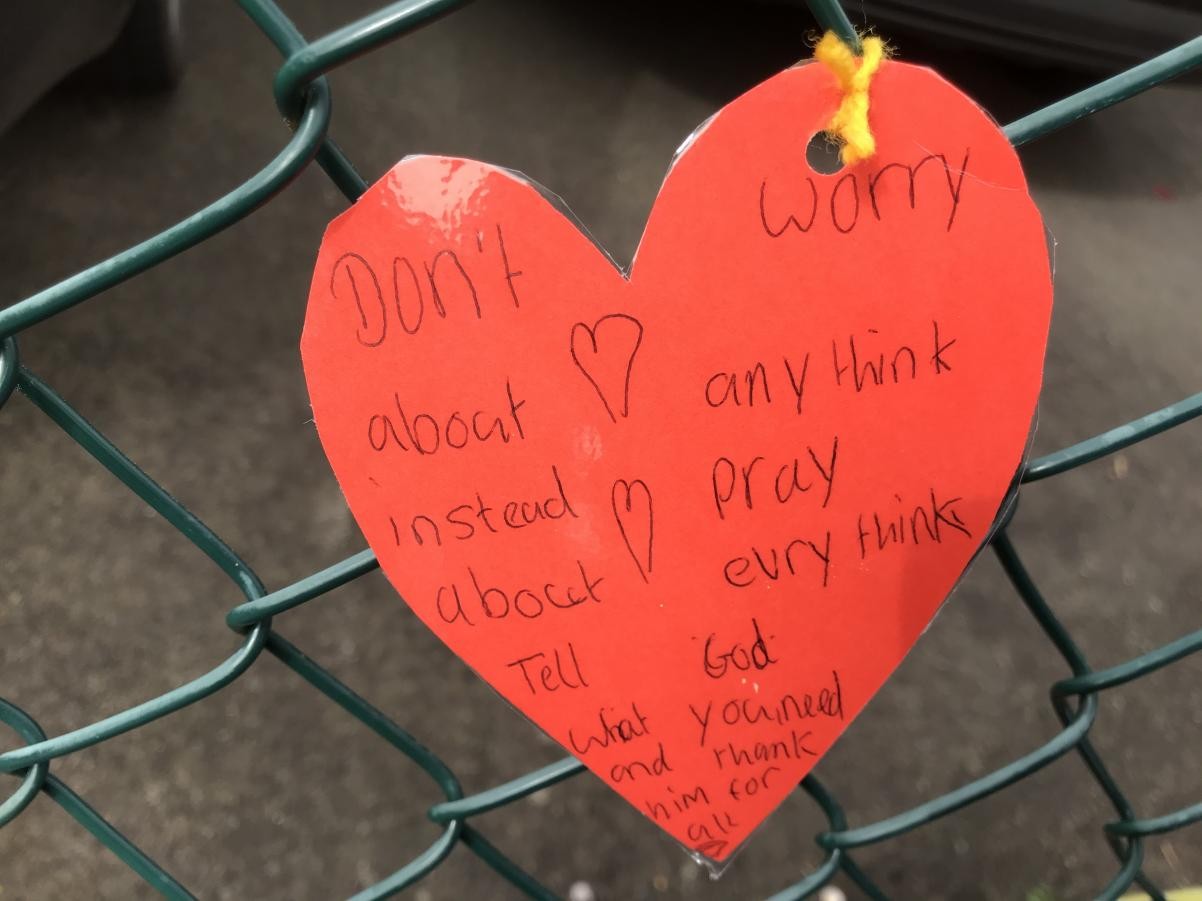 Don't worry
about any think
instead pray
about evry think
Tell God
what you need
and thank
him for
all